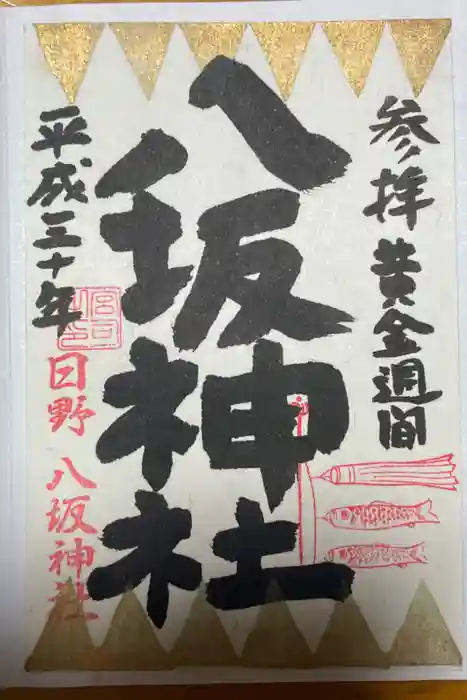 参拝 黄金週間
八坂神社
平成三十年
日野 八坂神社